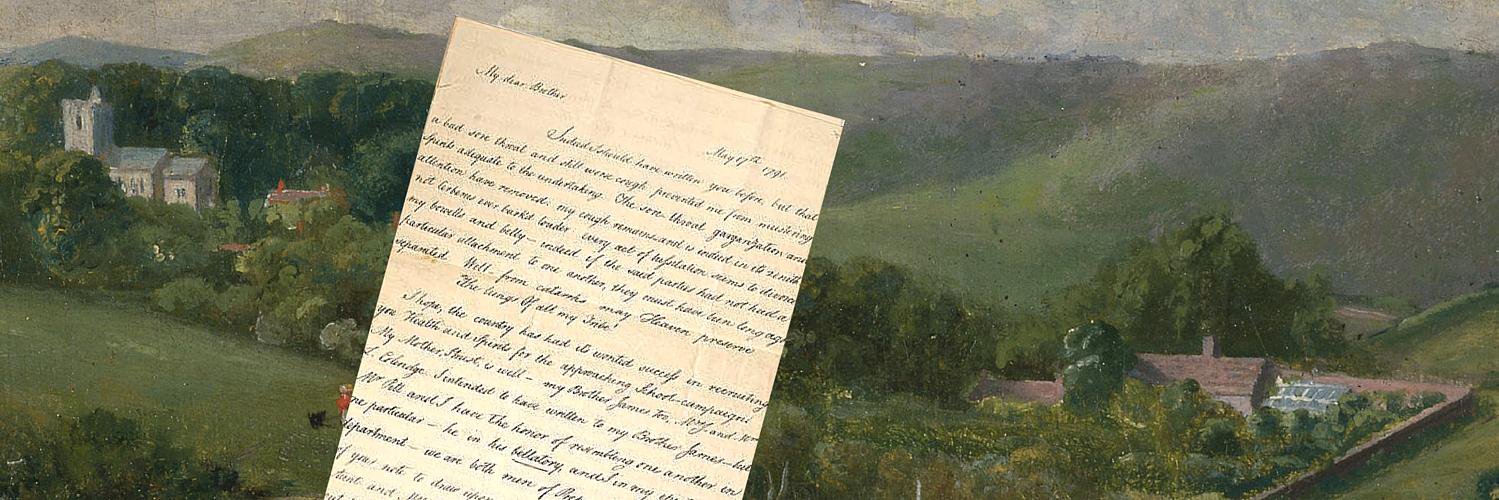 My dear Brother
May 17th 1791.
Indeed I should have written you before, but that
a bad sore throat and still worse cough prevented me from mustering
spirits adequate to the undertaking. The sore throat gargarization and
attention have removed: my cough remains and is indeed in its zenith
not Cerberus ever bark'd louder every act of tussitation seems to divorce
my bowells and belly — indeed if the said parties had not had a
particular attachment to one another, they must have been long ago
separated. Well — from catarrhs may Heaven preserve
The lungs Of all my Tribe!
I hope, the country has had its wonted success in recruiting
you Health and spirits for the approaching School-campaign
My Mother, I trust, is well — my Brother James too, Mrs J and Mr
L. Eldridge. I intended to have written to my Brother James — but
Mr Pitt and I have the honor of resembling one another in
one particular — he in his bellatory and I in my
department — we are both men of Prep
your note to draw upon
and